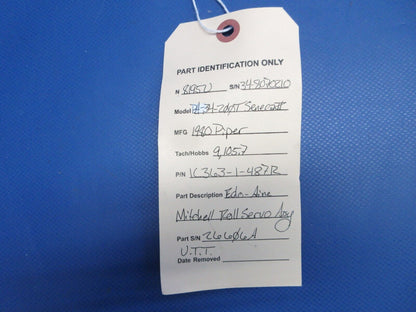 PART IDENTIFICATION ONLY
N 8195U S/N 348070210
Model PA-34-200T Seneca II
MFG 1980 Piper
Tach/Hobbs 9,105.7
P/N 1C363-1-487R
Part Description Edo-Aire
Mitchell Roll Servo Assy
Part S/N 26606A
U.T.T.
Date Removed